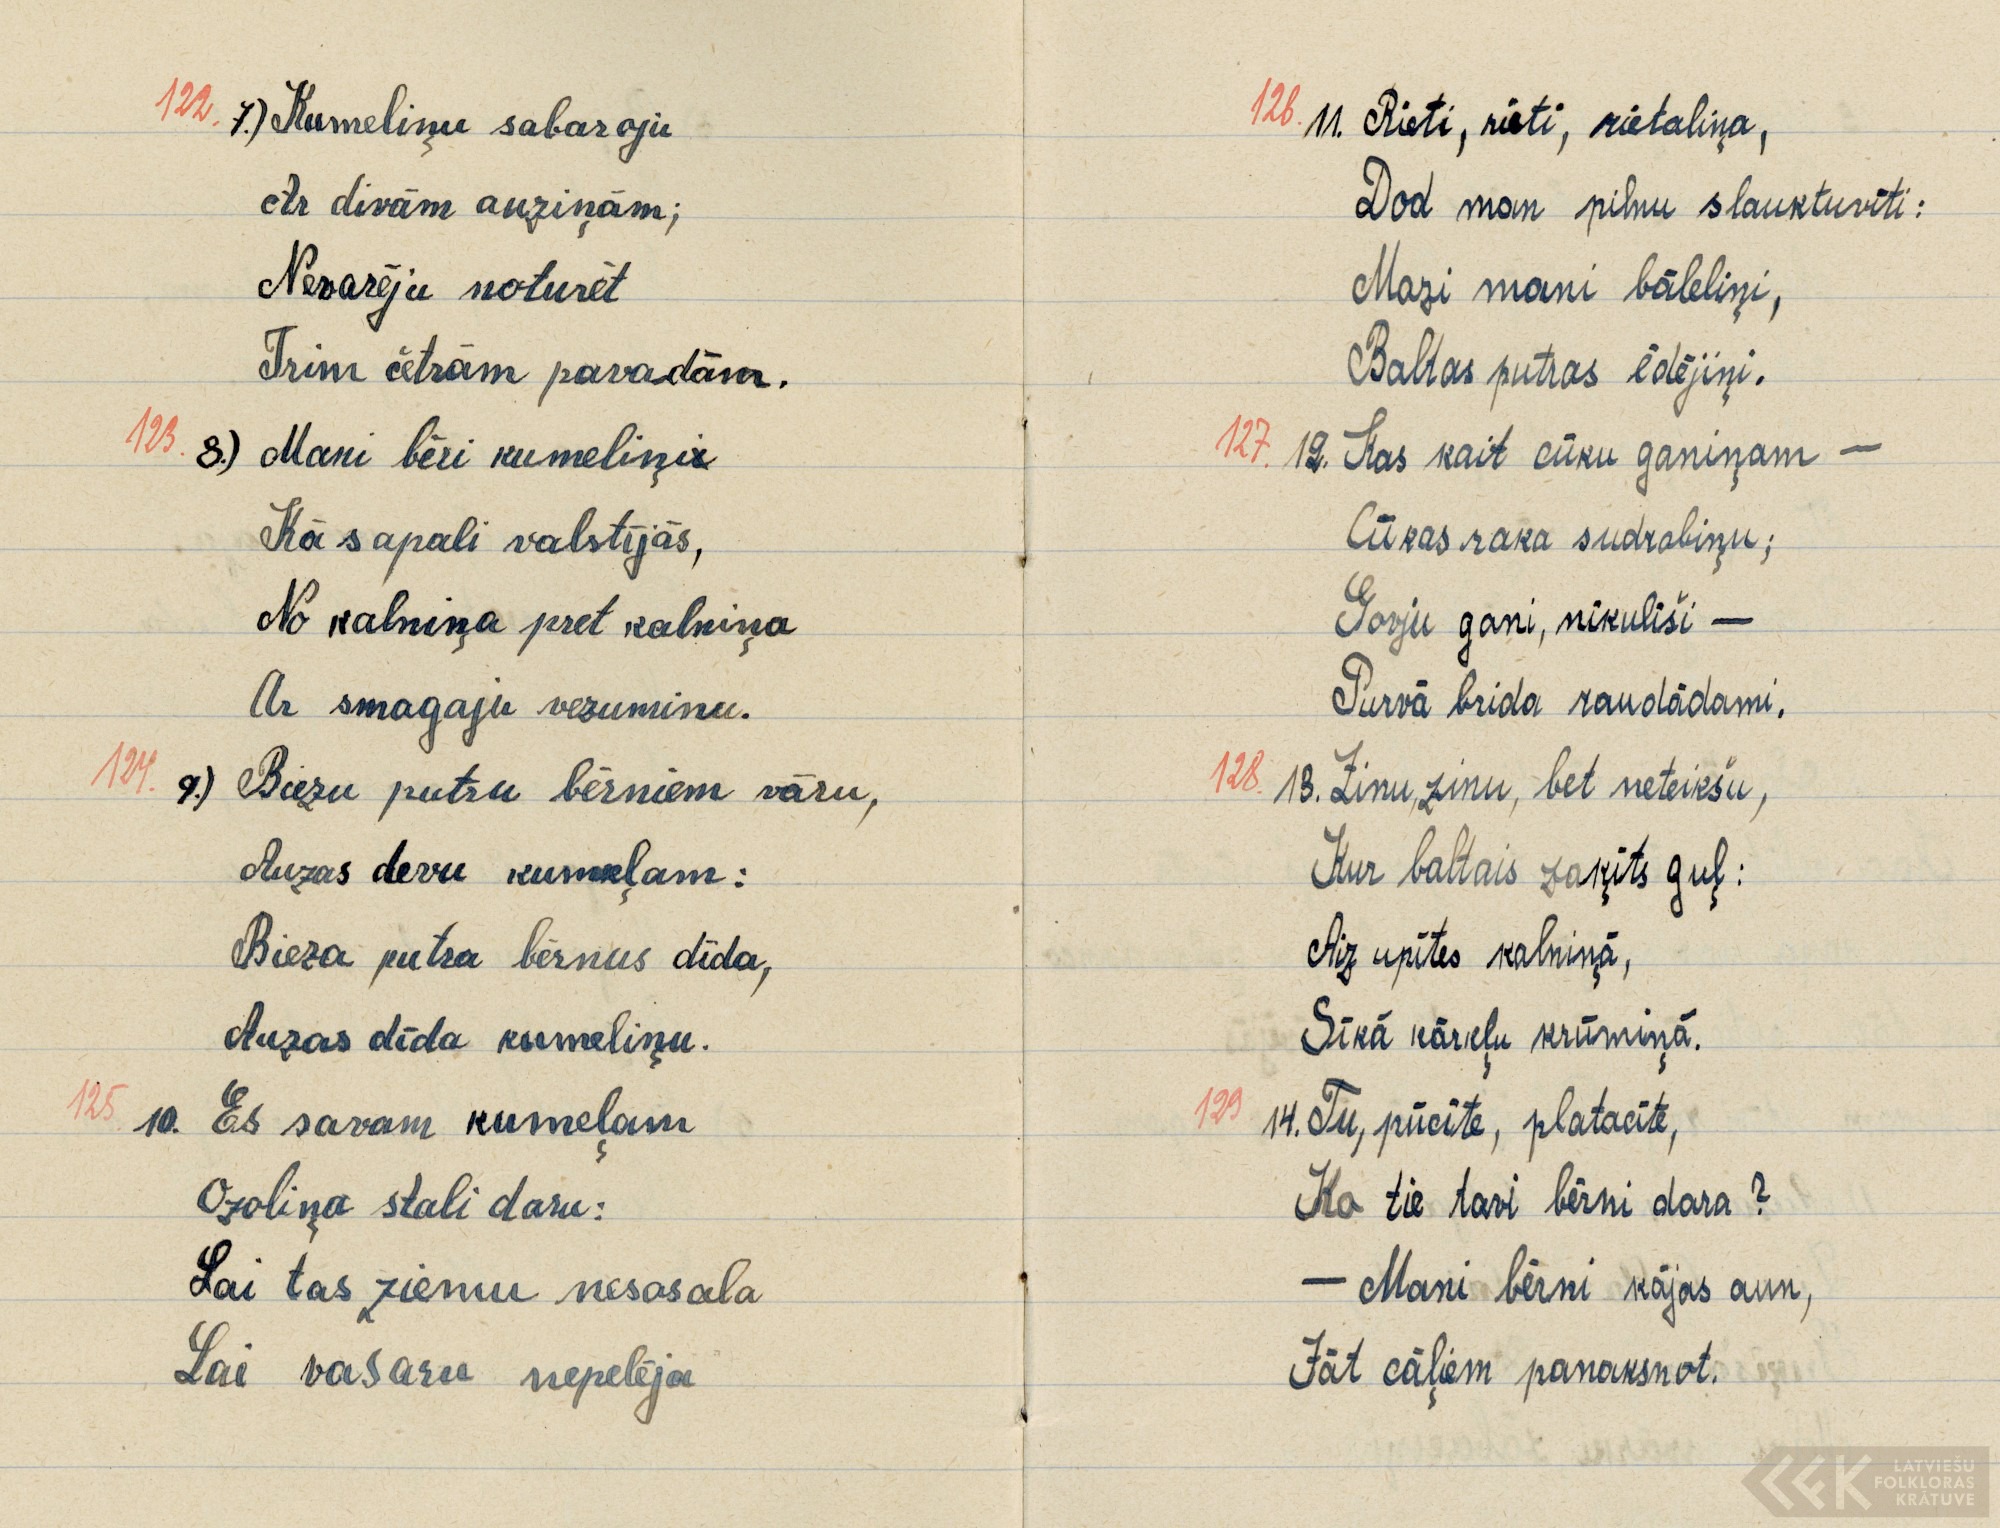 122. 7.) Kumeliņu sabaroju
Ar divām auziņām;
Nevarēju noturēt
Trim četrām pavadām.
123. 8.) Mani bēri kumeliņi
Kā sapali valstījās,
No kalniņa pret kalniņa
Ar smagaju vezuminu.
124. 9.) Biezu putru bērniem vāru,
Auzas devu kumeļam:
Bieza putra bērnus dīda,
Auzas dīda kumeliņu.
125 10. Es savam kumeļam
Ozoliņa stali daru:
Lai tas ziemu nesasala
Lai vasaru nepelēja
126. 11. Rieti, rieti, rietaliņa,
Dod man pilnu slauktuvīti:
Mazi mani bāleliņi,
Baltas putras ēdējiņi.
127. 12. Kas kait cūku ganiņam —
Cūkas raka sudrabiņu;
Govju gani, nīkulīši —
Purvā brida raudādami.
128. 13. Zinu, zinu, bet neteikšu,
Kur baltais zaķīts guļ:
Aiz upītes kalniņā,
Sīkā kārkļu krūmiņā.
129 14. Tu, pūcīte, platacīte,
Ko tie tavi bērni dara?
— Mani bērni kājas aun,
Jāt cāļiem panaksnot.
LATVIEŠU
FOLKLORAS
KRĀTUVE